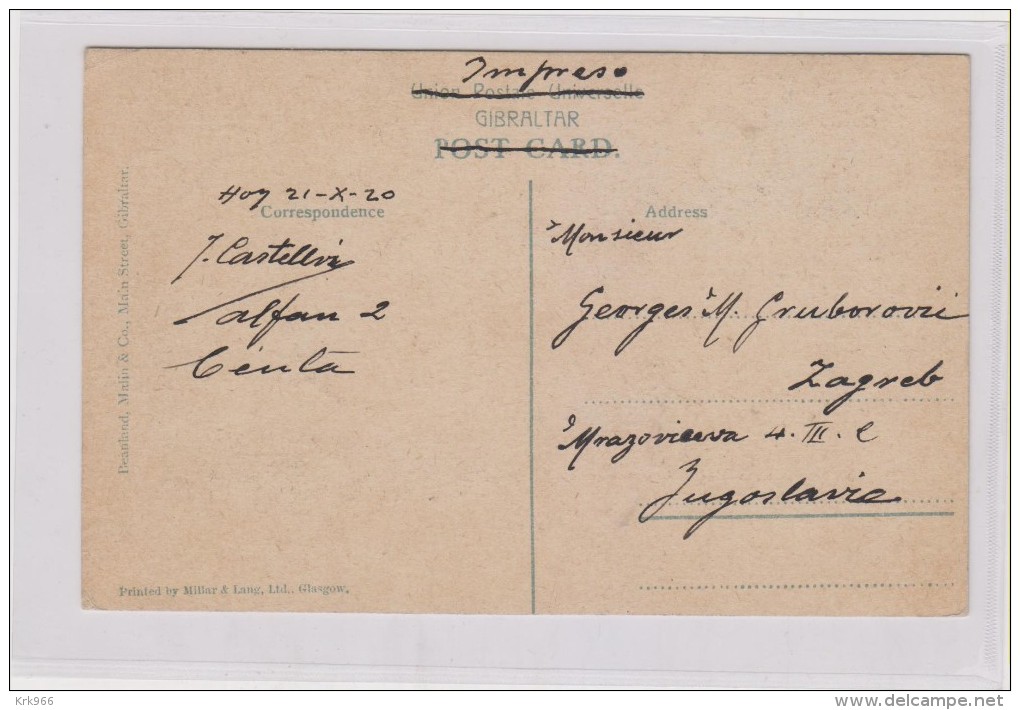 Impreso
Union Postale Universelle
GIBRALTAR
POST CARD.
Hoy 21-X-20
Correspondence
J. Castellvi
Alfau 2
Ceuta
Address
Monsieur
Georges M. Gruborovic
Zagreb
Mrazoviceva 4. III. l
Jugoslavie
Beanland, Malin & Co., Main Street, Gibraltar.
Printed by Millar & Lang, Ltd., Glasgow.
Krk966
delcampe.net